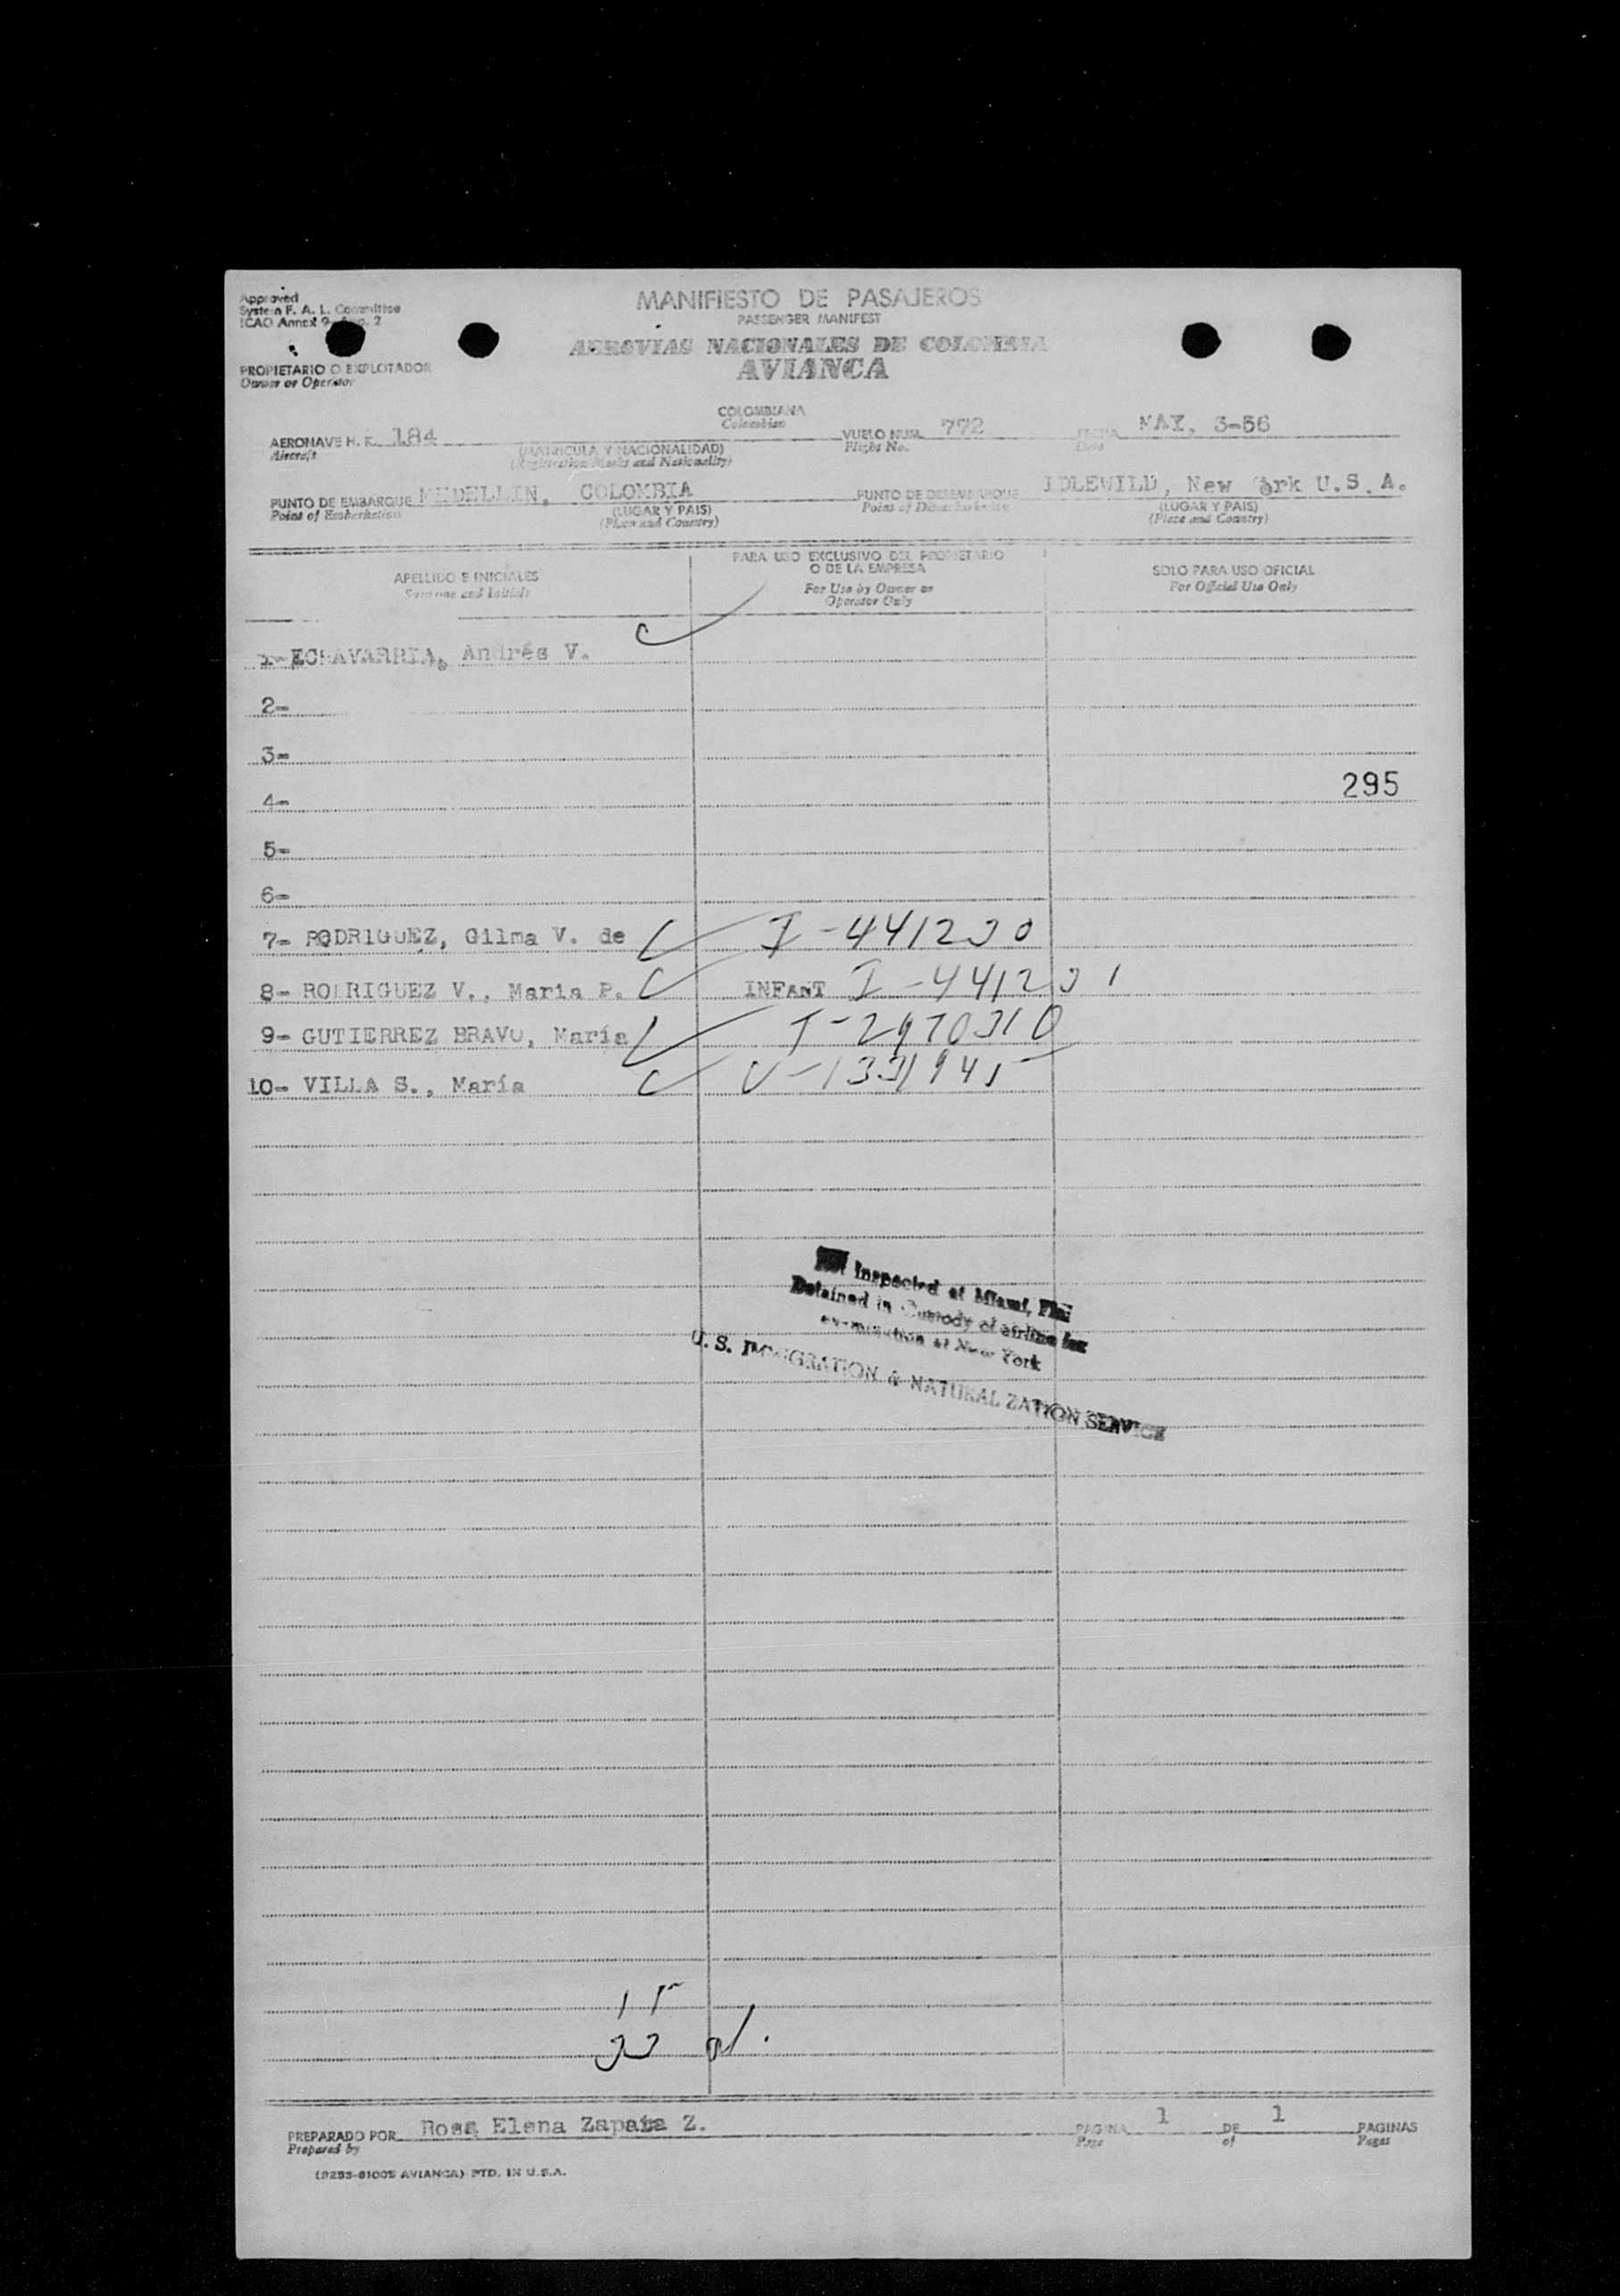 Approved
System F. A. L. Committee
ICAO Annex 9 2
MANIFIESTO DE PASAJEROS
PASSENGER MANIFEST
AEROVIAS NACIONALES DE COLOMBIA
AVIANCA
PROPIETARIO O EXPLOTADOR
Owner or Operator
COLOMBIANA
Colombian
AERONAVE H. K. 184
Aircraft
(MATRICULA Y NACIONALIDAD)
(Registration Marks and Nationality)
VUELO NUM. 772
Flight No.
FECHA MAY, 3-56
Date
PUNTO DE EMBARQUE MEDELLIN, COLOMBIA
Point of Embarkation
(LUGAR Y PAIS)
(Place and Country)
PUNTO DE DESEMBARQUE IDLEWILD, New York U.S.A.
Point of Disembarkation
(LUGAR Y PAIS)
(Place and Country)
APELLIDO E INICIALES
Surname and Initials
PARA USO EXCLUSIVO DEL PROPIETARIO
O DE LA EMPRESA
For Use by Owner or
Operator Only
SOLO PARA USO OFICIAL
For Official Use Only
1- ECHAVARRIA, Andrés V.
2-
3-
4-
295
5-
6-
7- RODRIGUEZ, Gilma V. de I-441230
8- RODRIGUEZ V., Maria P. INFANT I-441231
9- GUTIERREZ BRAVO, María I-2970310
10- VILLA S., María V-1331945
Not Inspected at Miami, Fla.
Detained in Custody of airline for
examination at New York
U. S. IMMIGRATION & NATURALIZATION SERVICE
15
33
PREPARADO POR Rosa Elena Zapata Z.
Prepared by
PAGINA 1 DE 1 PAGINAS
Page of Pages
(9253-61005 AVIANCA) PTD. IN U.S.A.